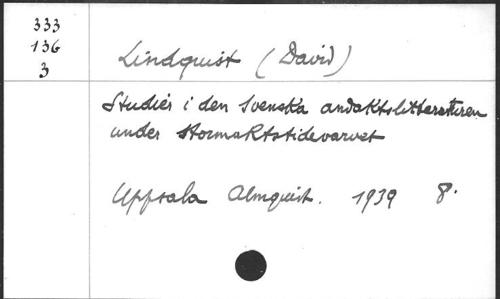 333
136
3
Lindquist (David)
Studier i den svenska andaktslitteraturen
under stormaktstidevarvet
Uppsala Almquist. 1939 8.